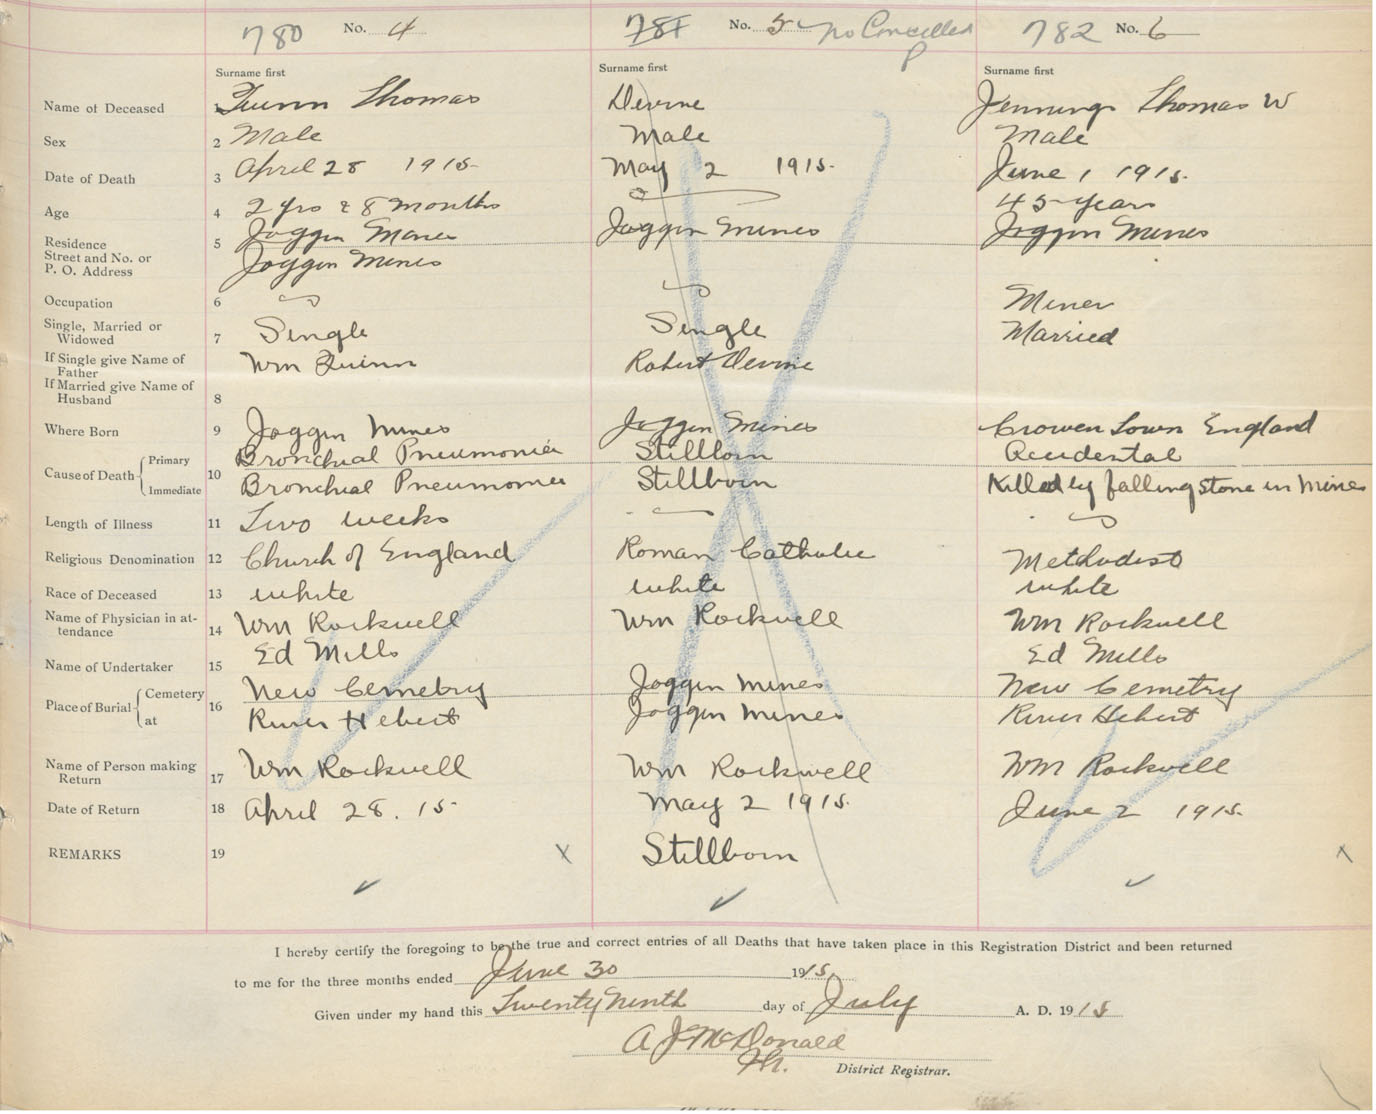 780 No. 4
781 No. 5 no Cancelled
782 No. 6
Surname first Surname first Surname first
Name of Deceased Quinn Thomas Devine Jennings Thomas W
Sex 2 Male Male Male
Date of Death 3 April 28 1915 May 2 1915. June 1 1915.
Age 4 2 yrs & 8 months 45 years
Residence 5 Joggin Mines Joggin Mines Joggin Mines
Street and No. or
P. O. Address Joggin Mines
Occupation 6 Miner
Single, Married or
Widowed 7 Single Single Married
If Single give Name of
Father Wm Quinn Robert Devine
If Married give Name of
Husband 8
Where Born 9 Joggin Mines Joggin Mines Crowen Town England
Cause of Death 10
Primary Bronchial Pneumonia Stillborn Accidental
Immediate Bronchial Pneumonia Stillborn Killed by falling stone in Mines
Length of Illness 11 Two weeks
Religious Denomination 12 Church of England Roman Catholic Methodist
Race of Deceased 13 white white white
Name of Physician in at-
tendance 14 Wm Rockwell Wm Rockwell Wm Rockwell
Name of Undertaker 15 Ed Mills Ed Mills
Place of Burial 16
Cemetery New Cemetry Joggin Mines New Cemetry
at River Hebert Joggin Mines River Hebert
Name of Person making
Return 17 Wm Rockwell Wm Rockwell Wm Rockwell
Date of Return 18 April 28. 15 May 2 1915. June 2 1915.
REMARKS 19 X Stillborn X
I hereby certify the foregoing to be the true and correct entries of all Deaths that have taken place in this Registration District and been returned
to me for the three months ended June 30 1915
Given under my hand this Twenty Ninth day of July A. D. 1915
A J McDonald
District Registrar.